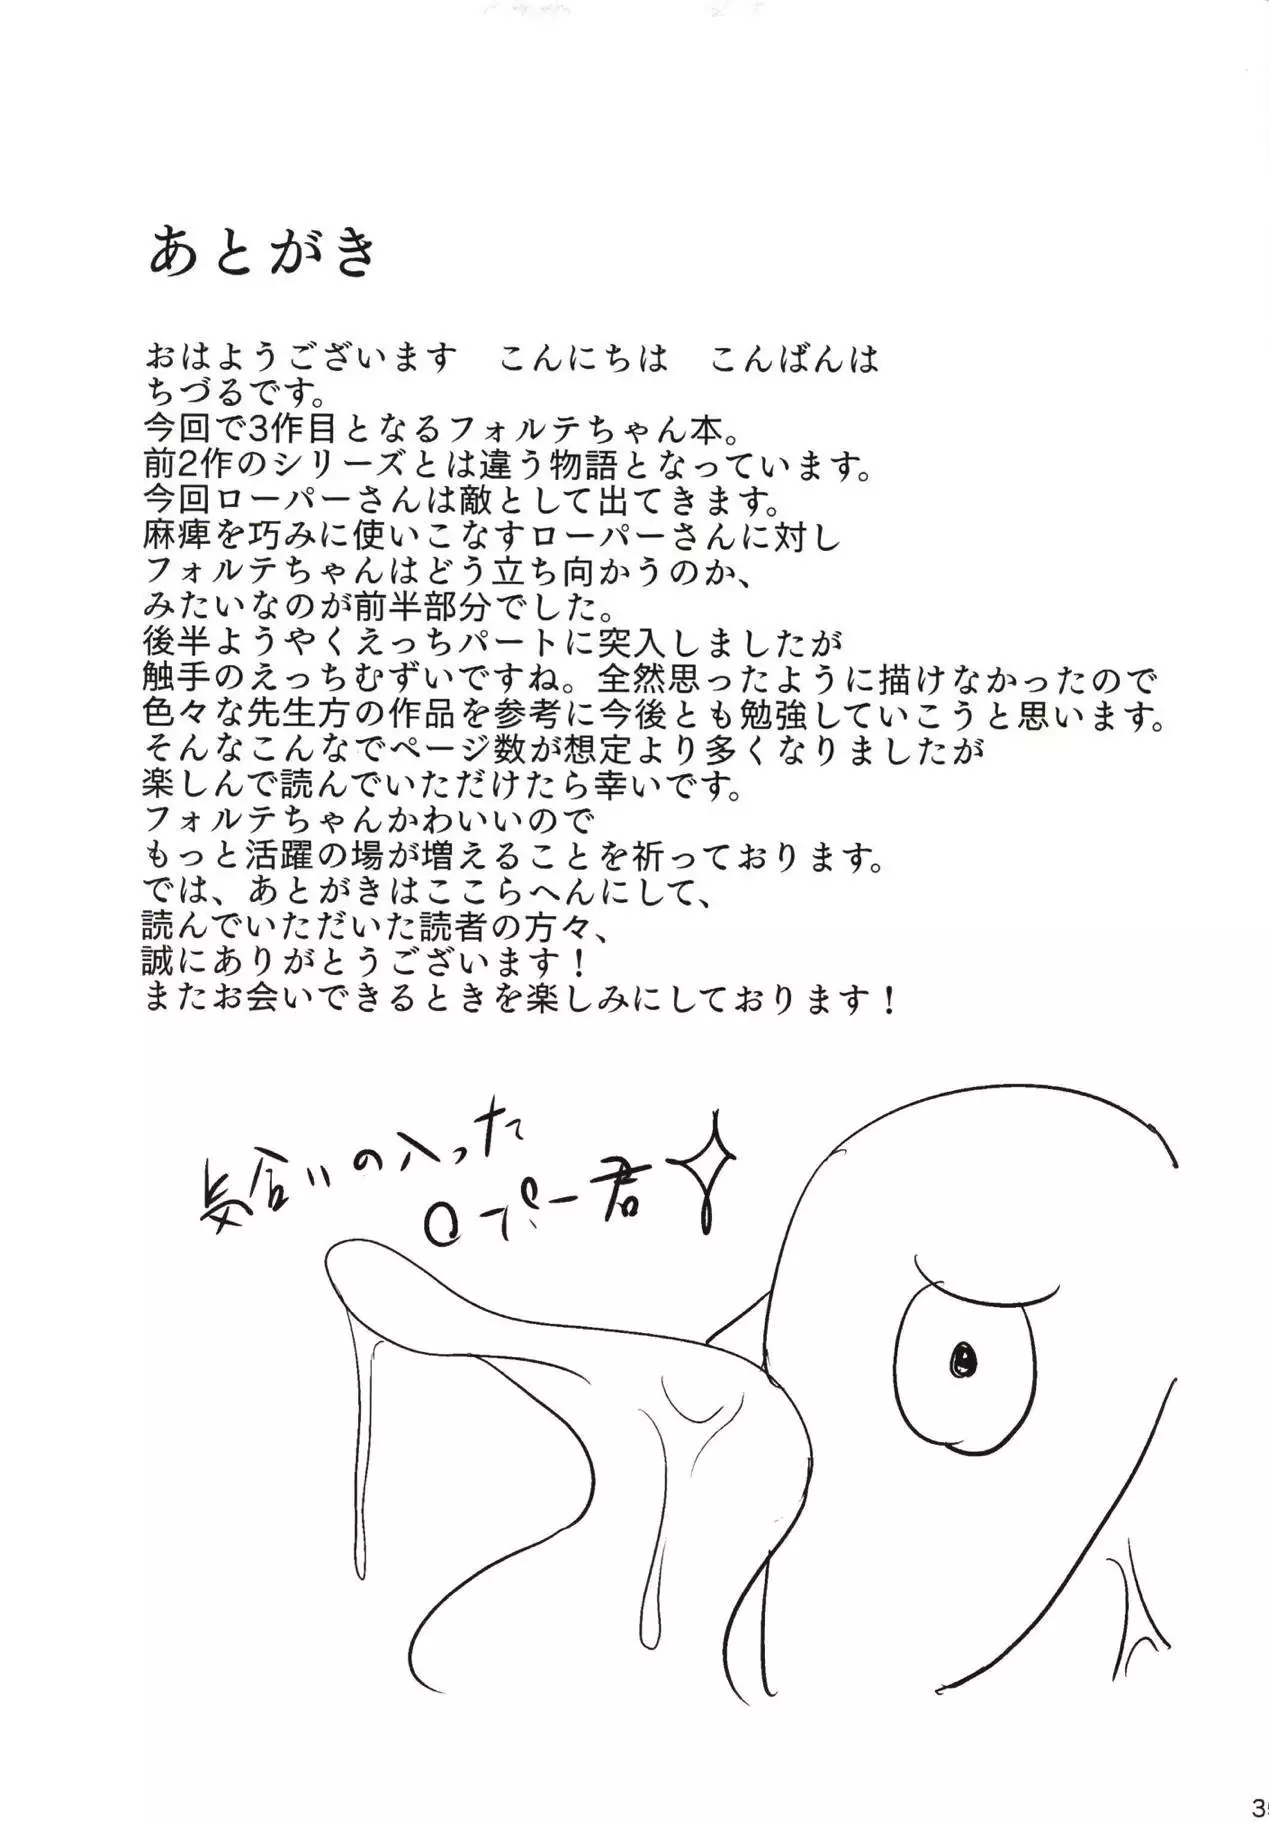 あとがき
おはようございます　こんにちは　こんばんは
ちづるです。
今回で3作目となるフォルテちゃん本。
前2作のシリーズとは違う物語となっています。
今回ローパーさんは敵として出てきます。
麻痺を巧みに使いこなすローパーさんに対し
フォルテちゃんはどう立ち向かうのか、
みたいなのが前半部分でした。
後半ようやくえっちパートに突入しましたが
触手のえっちむずいですね。全然思ったように描けなかったので
色々な先生方の作品を参考に今後とも勉強していこうと思います。
そんなこんなでページ数が想定より多くなりましたが
楽しんで読んでいただけたら幸いです。
フォルテちゃんかわいいので
もっと活躍の場が増えることを祈っております。
では、あとがきはここらへんにして、
読んでいただいた読者の方々、
誠にありがとうございます！
またお会いできるときを楽しみにしております！
気合いの入った
ローパー君